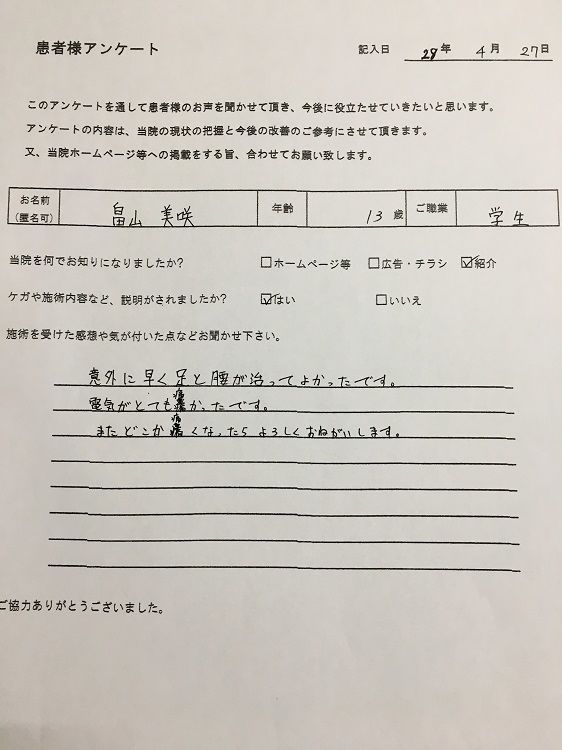 患者様アンケート
記入日 29年 4月 27日
このアンケートを通して患者様のお声を聞かせて頂き、今後に役立たせていきたいと思います。
アンケートの内容は、当院の現状の把握と今後の改善のご参考にさせて頂きます。
又、当院ホームページ等への掲載をする旨、合わせてお願い致します。
お名前(匿名可) 畠山 美咲 年齢 13歳 ご職業 学生
当院を何でお知りになりましたか? □ホームページ等 □広告・チラシ ☑紹介
ケガや施術内容など、説明がされましたか? ☑はい □いいえ
施術を受けた感想や気が付いた点などお聞かせ下さい。
意外に早く足と腰が治ってよかったです。
電気がとても痛かったです。
またどこか痛くなったらよろしくおねがいします。
ご協力ありがとうございました。